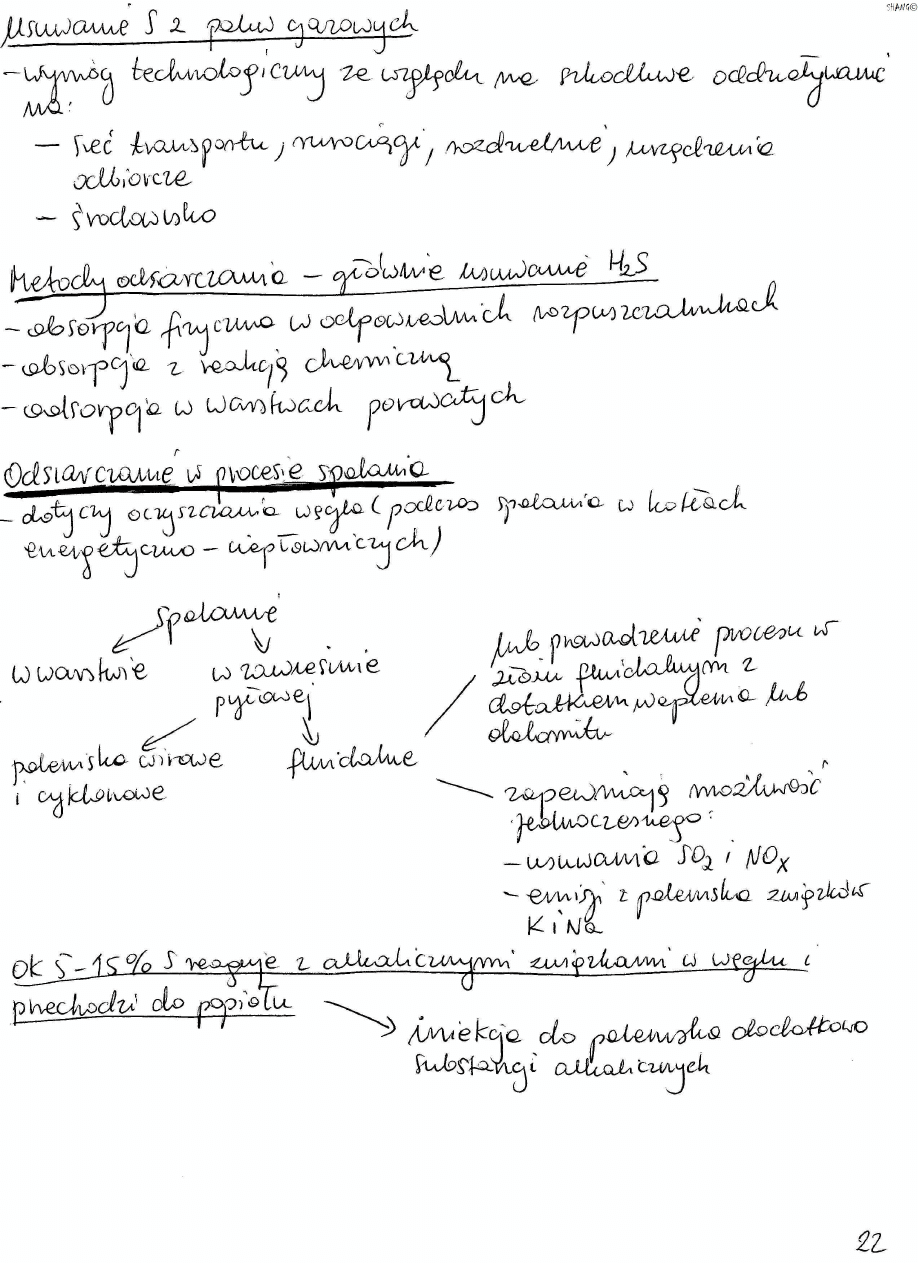 SHANG©
Usuwanie S z paliw gazowych
- wymóg technologiczny ze względu na szkodliwe oddziaływanie
na:
— sieć transportu, rurociągi, rozdzielnie, urządzenia
odbiorcze
— środowisko
Metody odsiarczania – głównie usuwanie H₂S
- absorpcja fizyczna w odpowiednich rozpuszczalnikach
- absorpcja z reakcją chemiczną
- adsorpcja w warstwach porowatych
Odsiarczanie w procesie spalania
- dotyczy oczyszczania węgla (podczas spalania w kotłach
energetyczno – ciepłowniczych)
spalanie
w warstwie
w zawiesinie
pyłowej
paleniska wirowe
i cyklonowe
fluidalne
lub prowadzenie procesu w
złożu fluidalnym z
dodatkiem wapienia lub
dolomitu
zapewniają możliwość
jednoczesnego:
- usuwania SO₂ i NOₓ
- emisji z paleniska związków
K i Na
OK 5-15% S reaguje z alkalicznymi związkami w węglu i
przechodzi do popiołu
iniekcja do paleniska dodatkowo
substancji alkalicznych
22